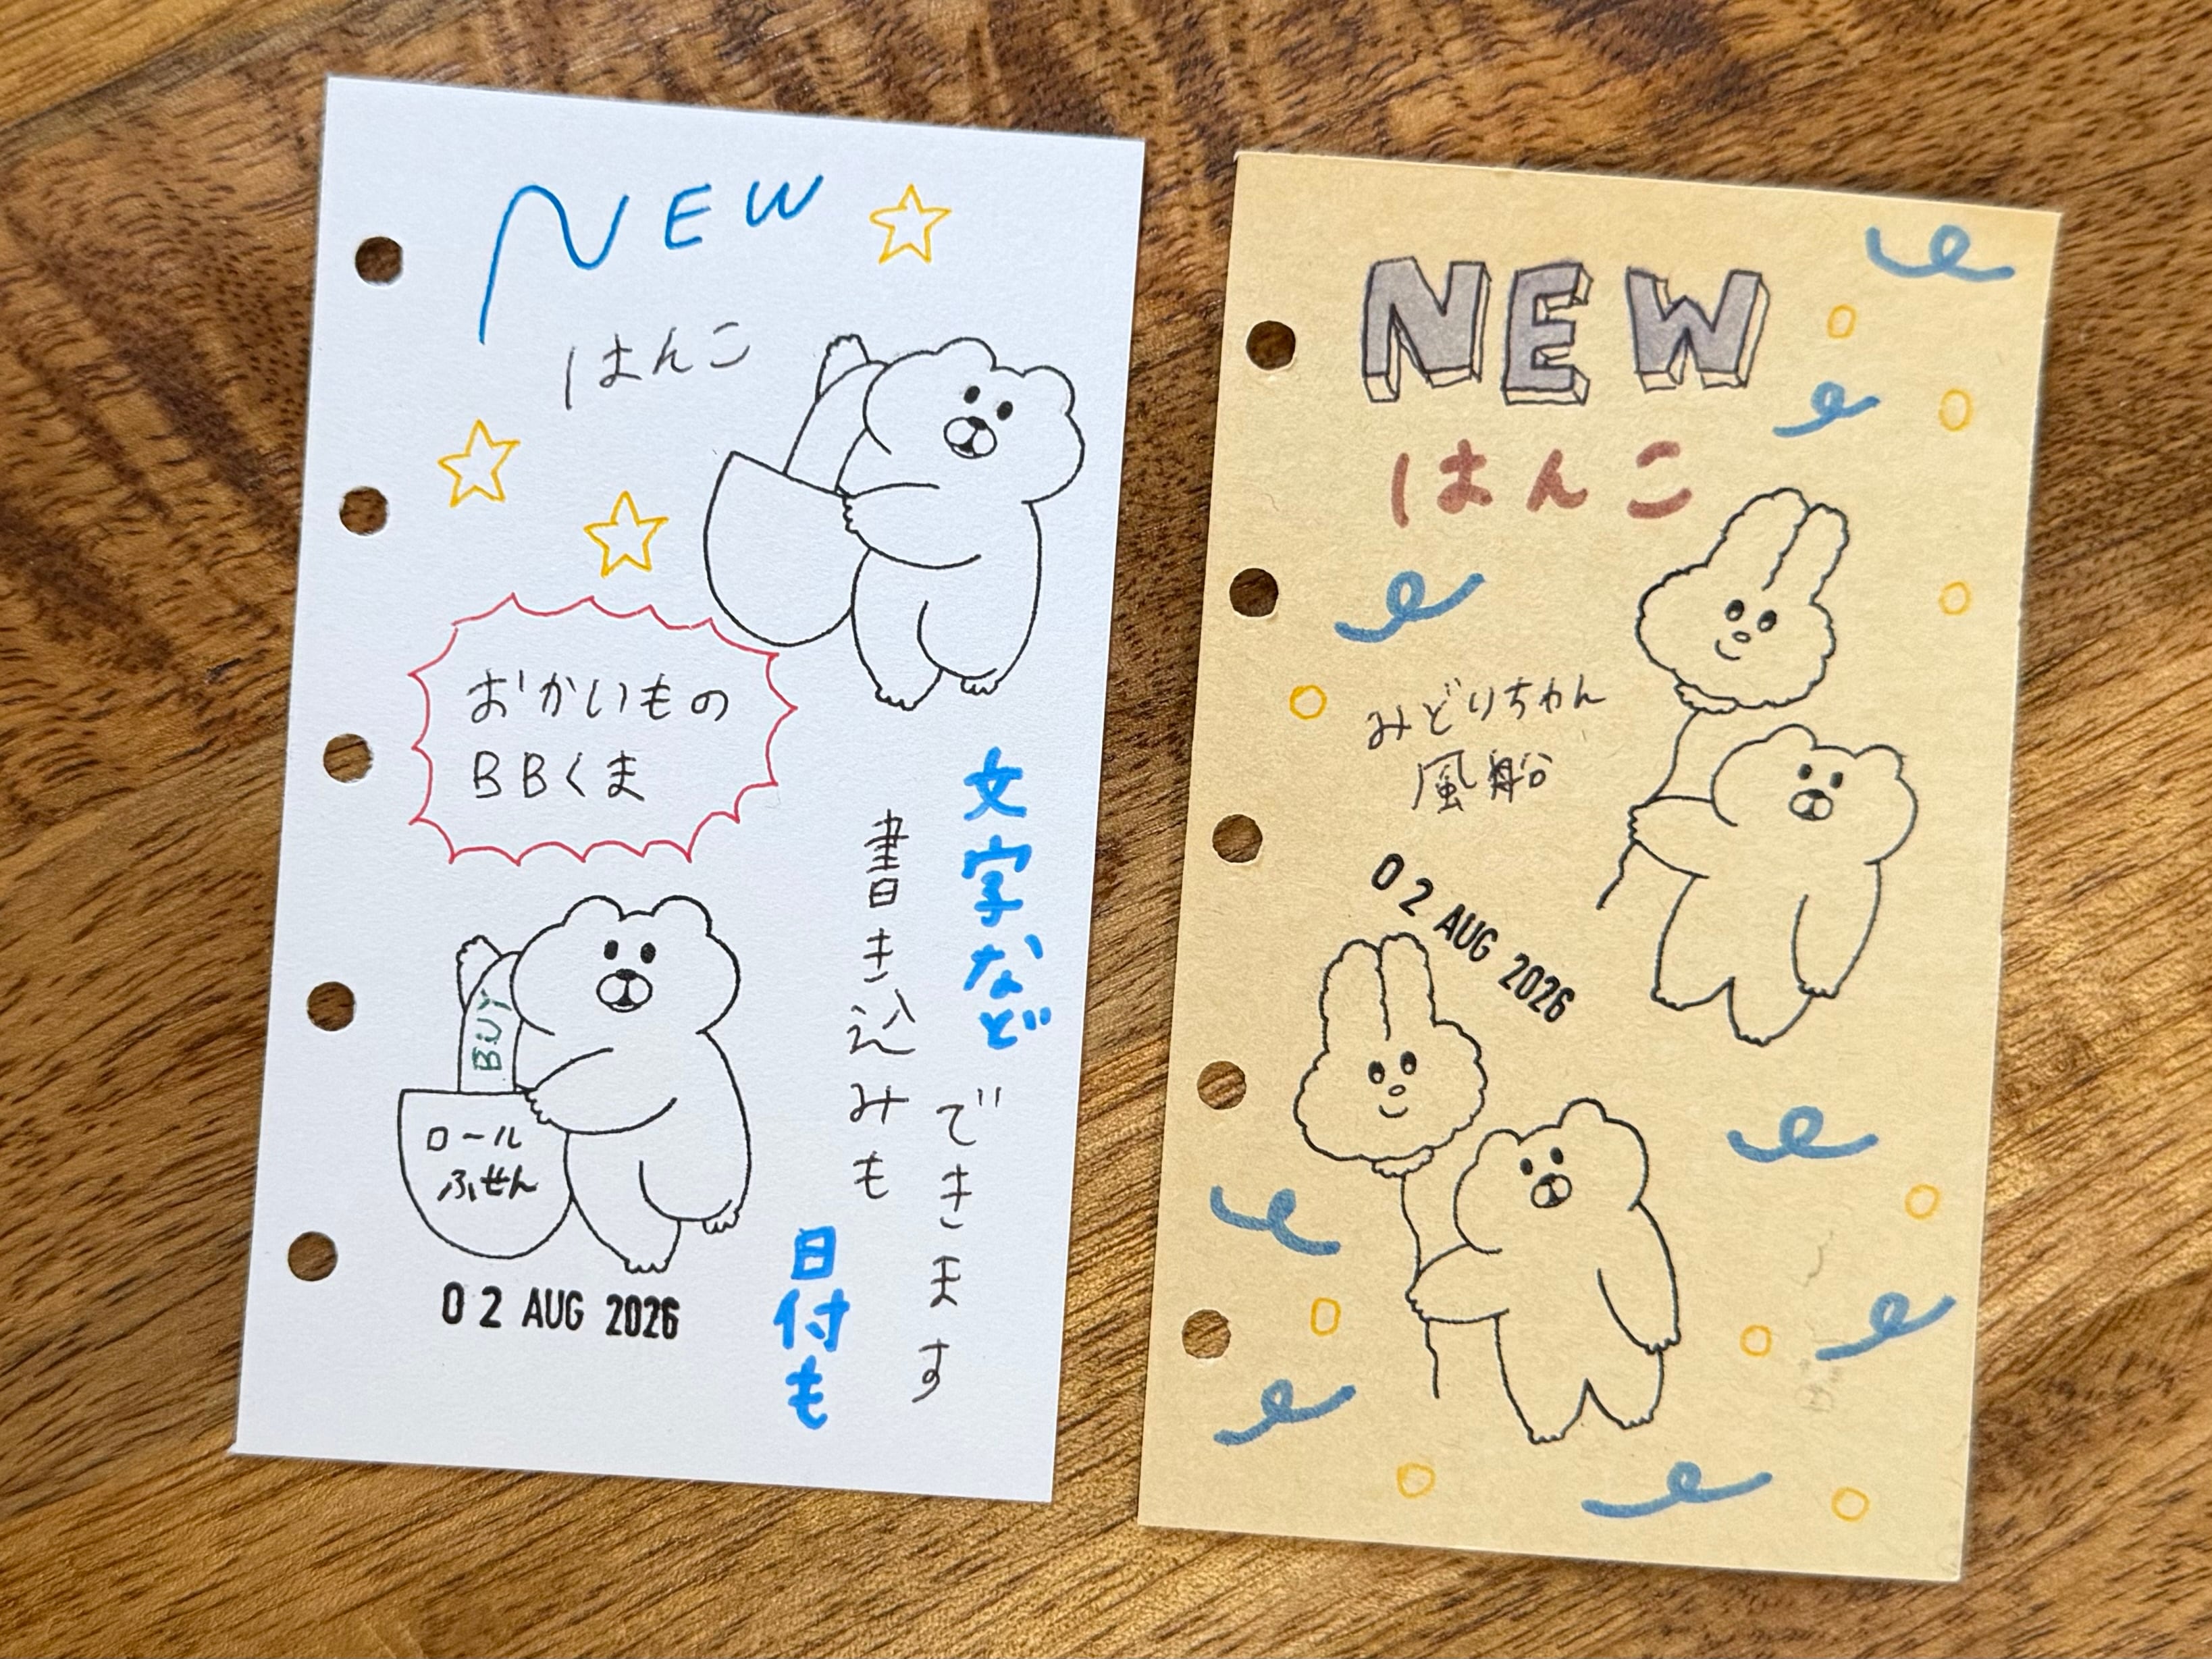 NEW
はんこ
おかいもの
BBくま
文字など
書き込みも
できます
BUY
ロール
ふせん
日付も
02 AUG 2026
NEW
はんこ
みどりちゃん
風船
02 AUG 2026